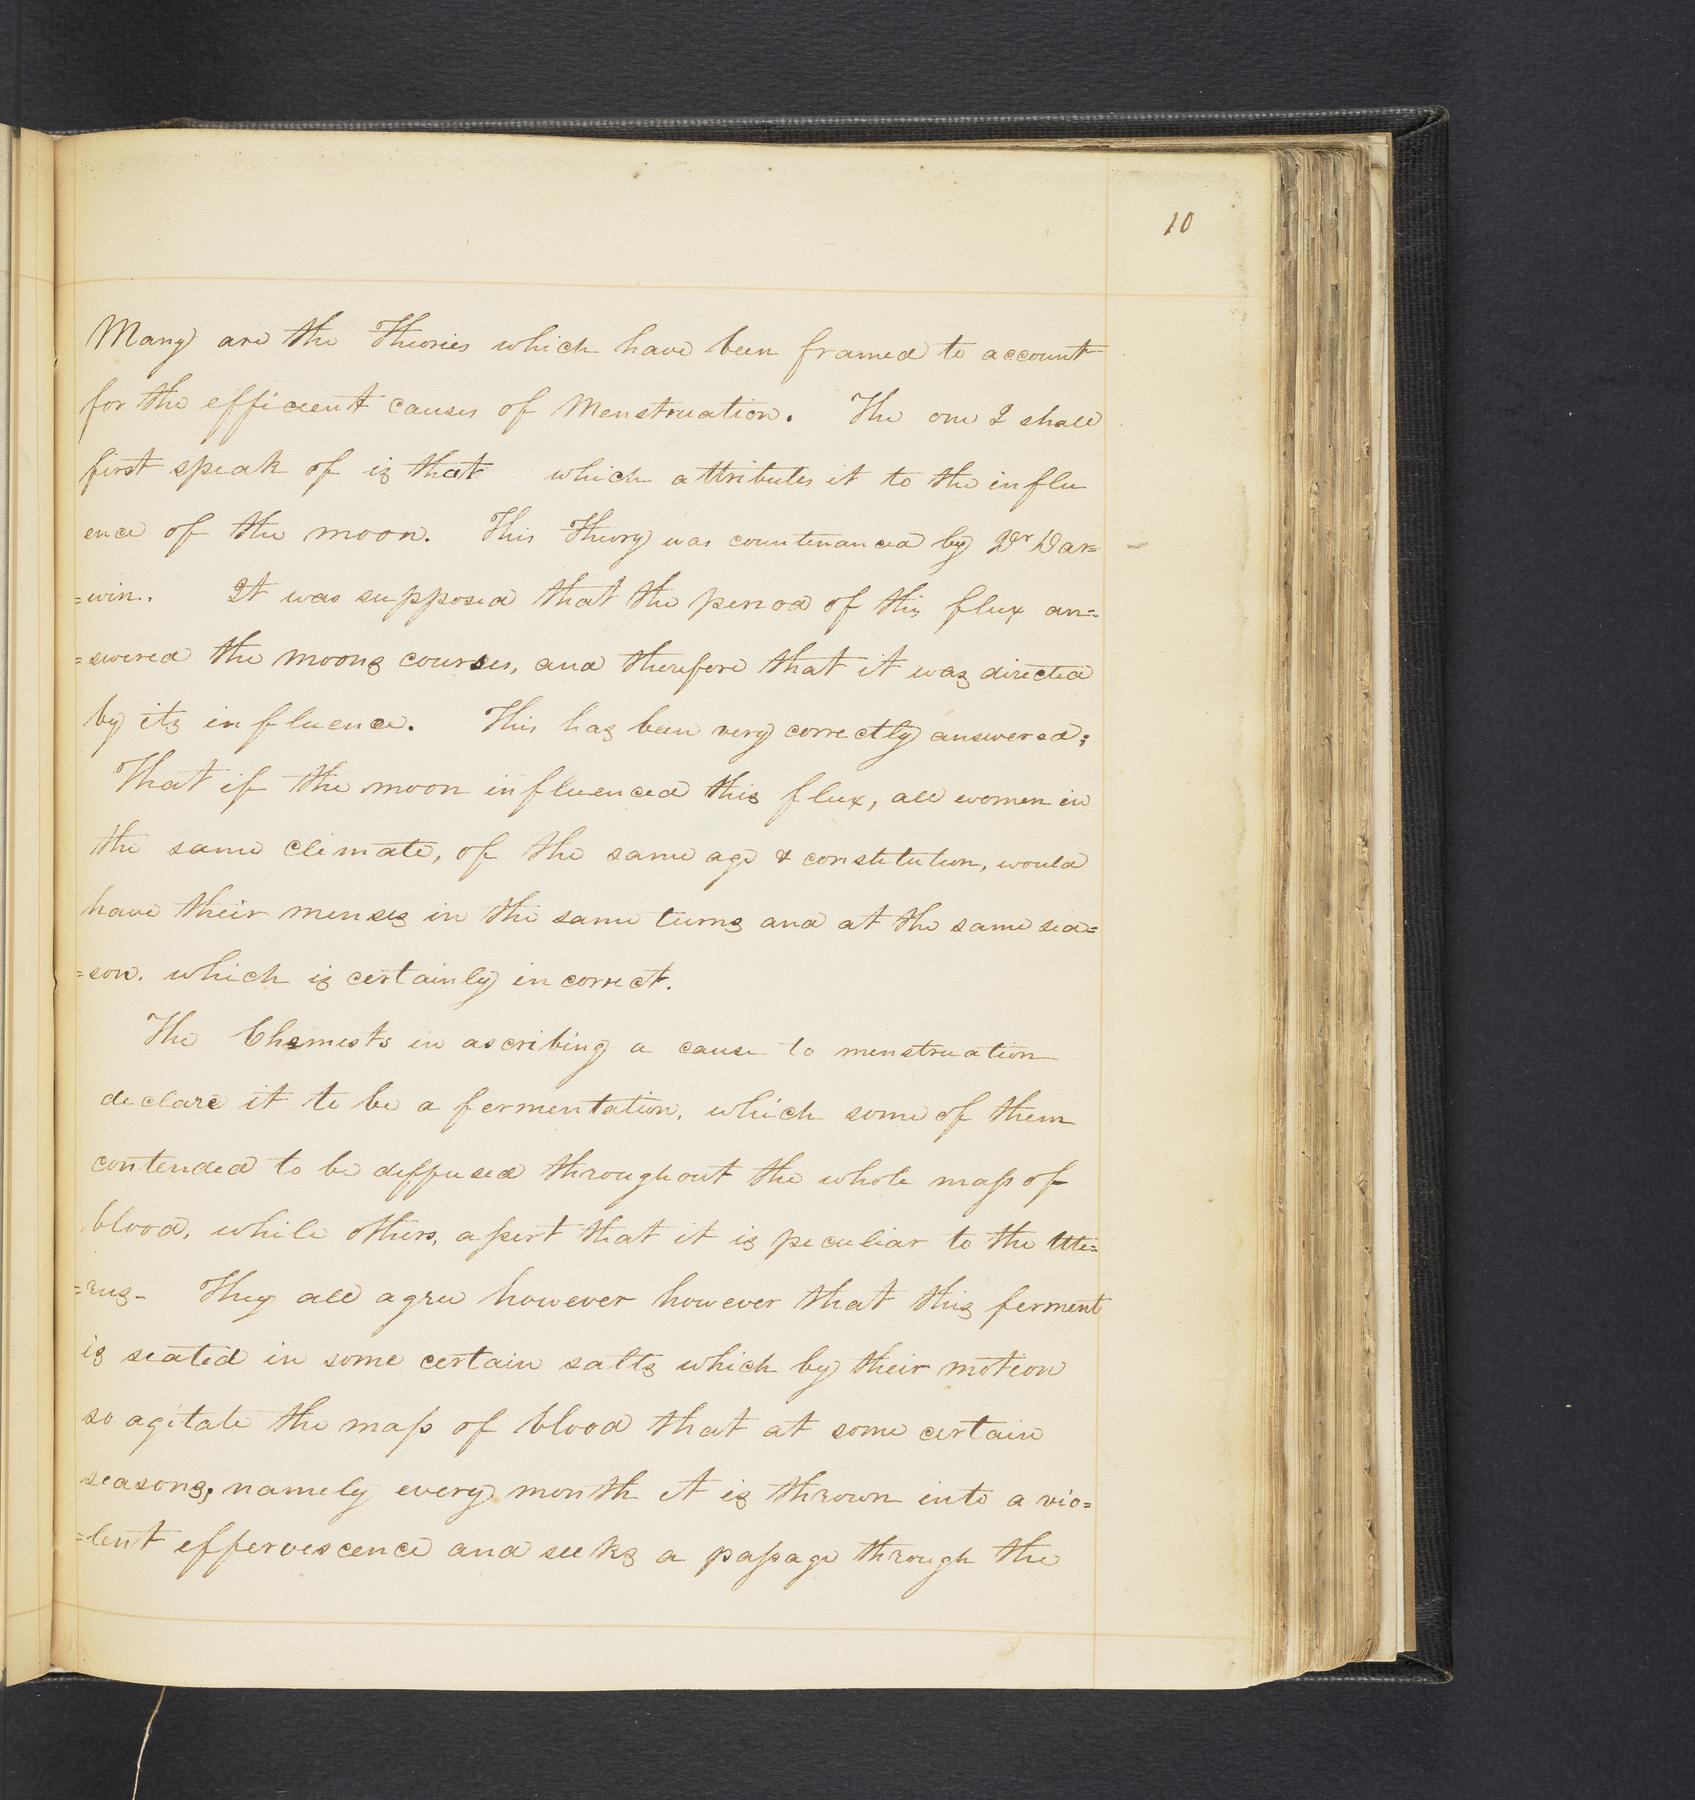 10
Many are the Theories which have been framed to account
for the efficient causes of Menstruation. The one I shall
first speak of is that which attributes it to the influ
ence of the moon. This Theory was countenanced by Dr Dar=
=win. It was supposed that the period of this flux an=
=swered the moons courses, and therefore that it was directed
by its influence. This has been very correctly answered;
That if the moon influenced this flux, all women in
the same climate, of the same age & constitution, would
have their menses in the same turns and at the same sea=
=son. which is certainly incorrect.
The Chemists in ascribing a cause to menstruation
declare it to be a fermentation, which some of them
contended to be diffused throughout the whole mass of
blood, while others, assert that it is peculiar to the Ute=
=rus- They all agree however however that this ferment
is seated in some certain salts which by their motion
so agitate the mass of blood that at some certain
seasons, namely every month it is thrown into a vio=
=lent effervescence and seeks a passage through the